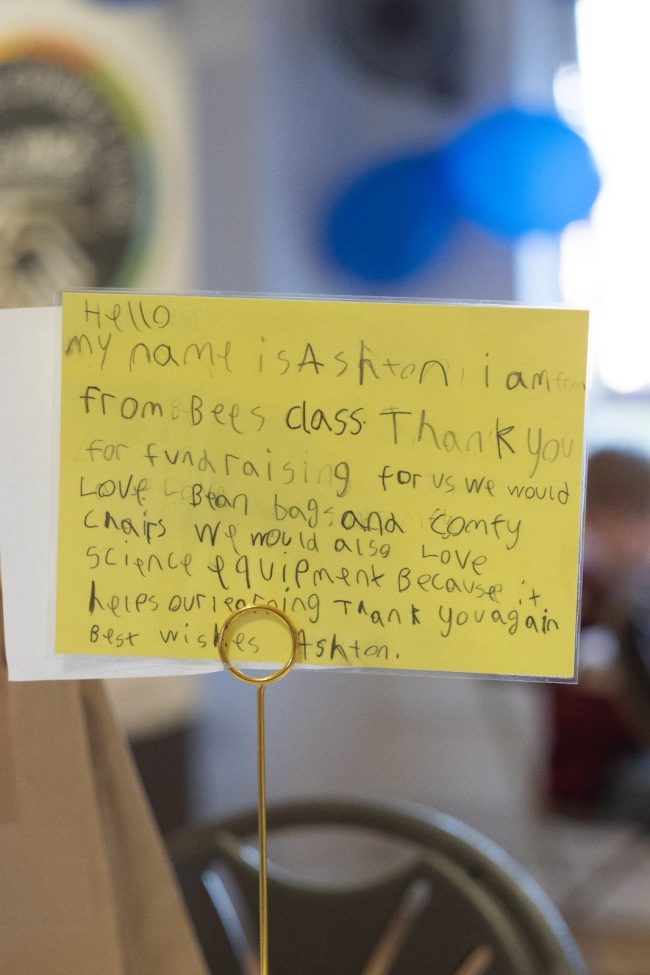 Hello
my name is Ashton i am
from Bees class. Thank you
for fundraising for us we would
Love Bean bags and comfy
chairs we would also Love
science equipment Because it
helps our learning Thank you again
Best wishes Ashton.